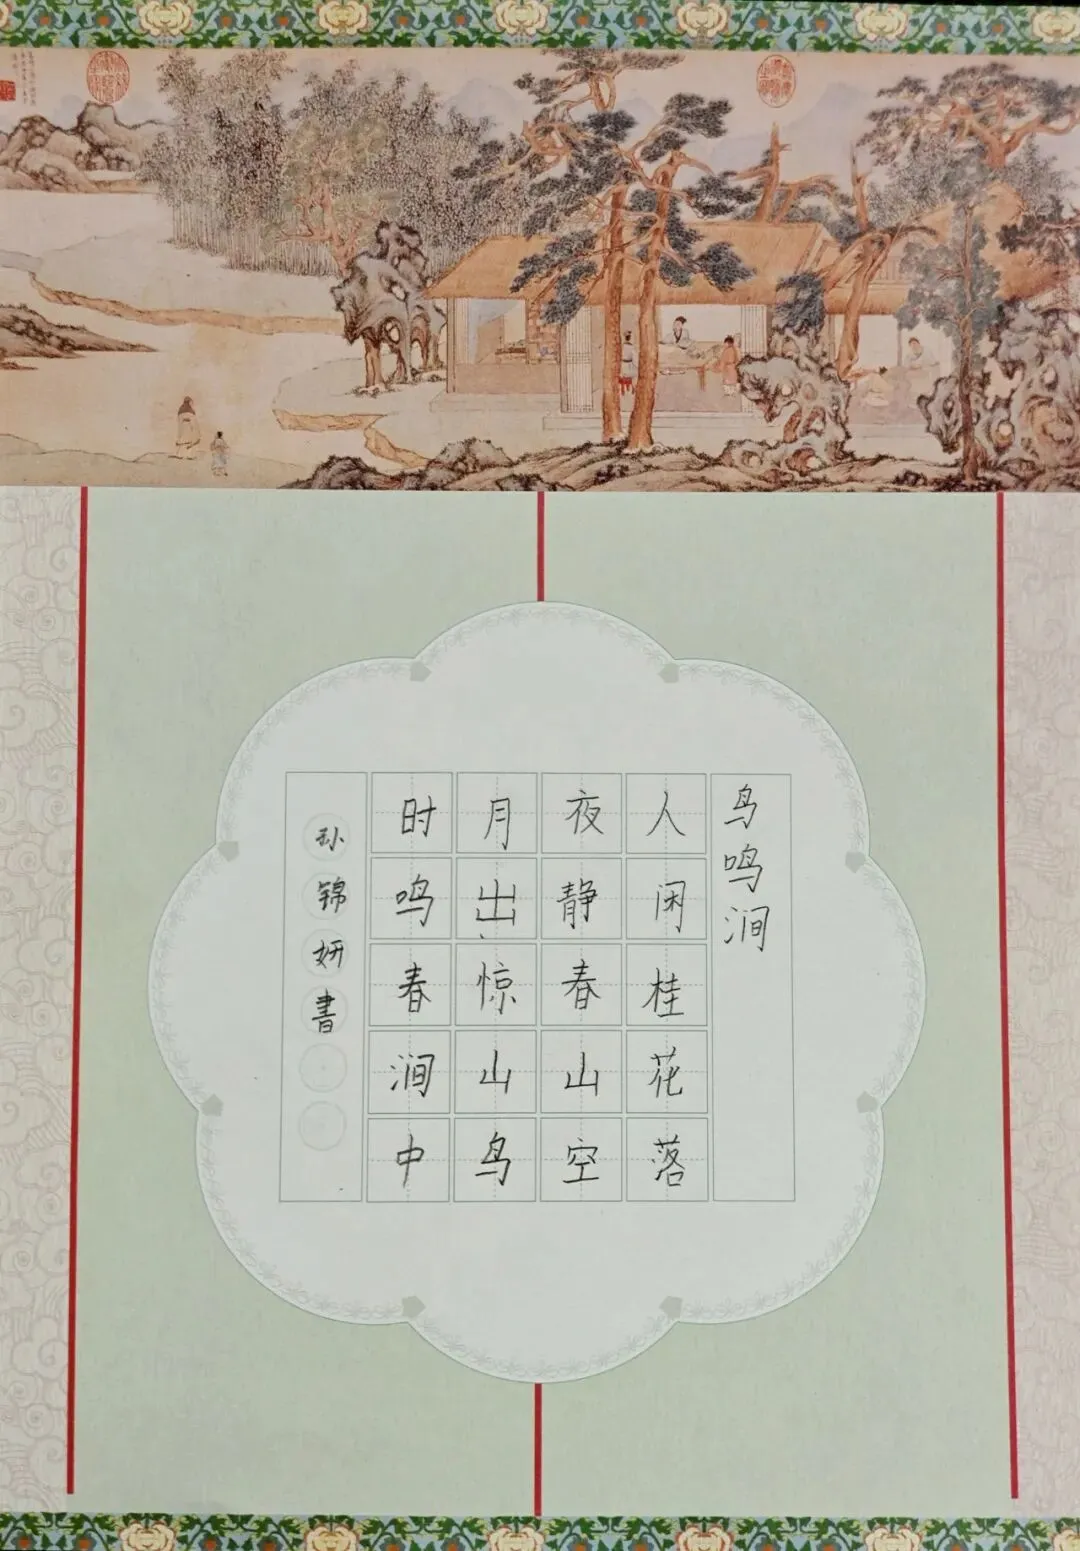 鸟鸣涧
人闲桂花落
夜静春山空
月出惊山鸟
时鸣春涧中
孙锦妍書